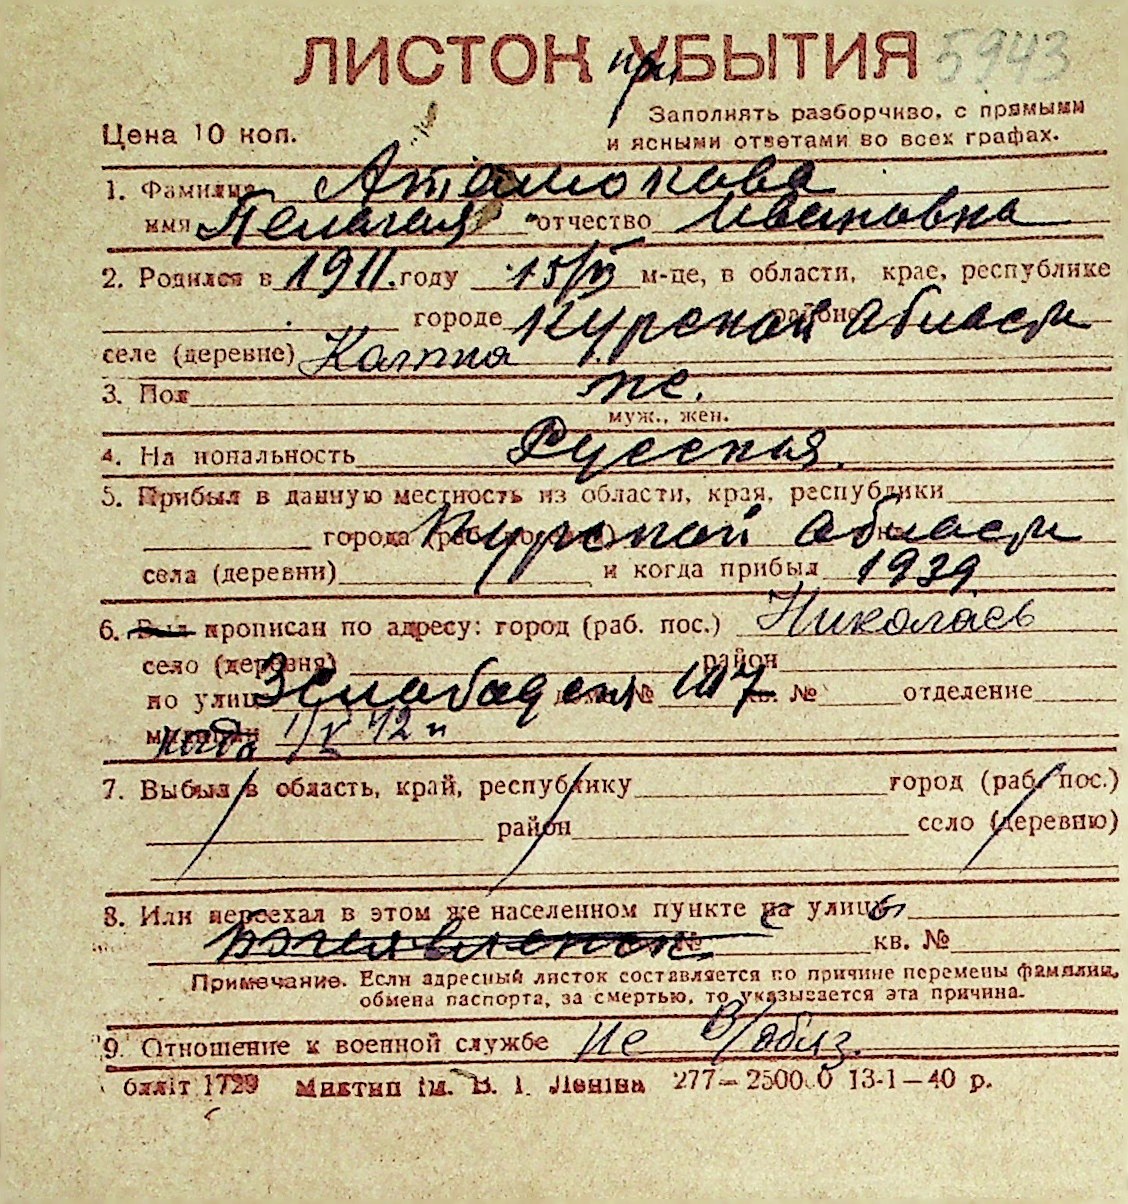 ЛИСТОК при УБЫТИЯ 5943
Заполнять разборчиво, с прямыми
Цена 10 коп.
и ясными ответами во всех графах.
1. Фамилия Атамюкова
имя Пелагая отчество Ивановна
2. Родился в 1911. году 15/III м-це, в области, крае, республике
городе районе Курской области
селе (деревне) Колпна
3. Пол ж.
муж., жен.
4. На нопальность Русская.
5. Прибыл в данную местность из области, края, республики
города Курской области
села (деревни) и когда прибыл 1939
6. Был прописан по адресу: город (раб. пос.) Николаев
село (деревня) район
по улице № 107 кв. № отделение
милиции когда 1/V 42 г
7. Выбыл в область, край, республику город (раб. пос.)
район село (деревню)
8. Или переехал в этом же населенном пункте с на улицы
№ кв. №
Примечание. Если адресный листок составляется по причине перемены фамилии,
обмена паспорта, за смертью, то указывается эта причина.
9. Отношение к военной службе не в/обяз.
бллiт 1729 Миктип iм. В. I. Ленiна 277—250000 13-1—40 р.